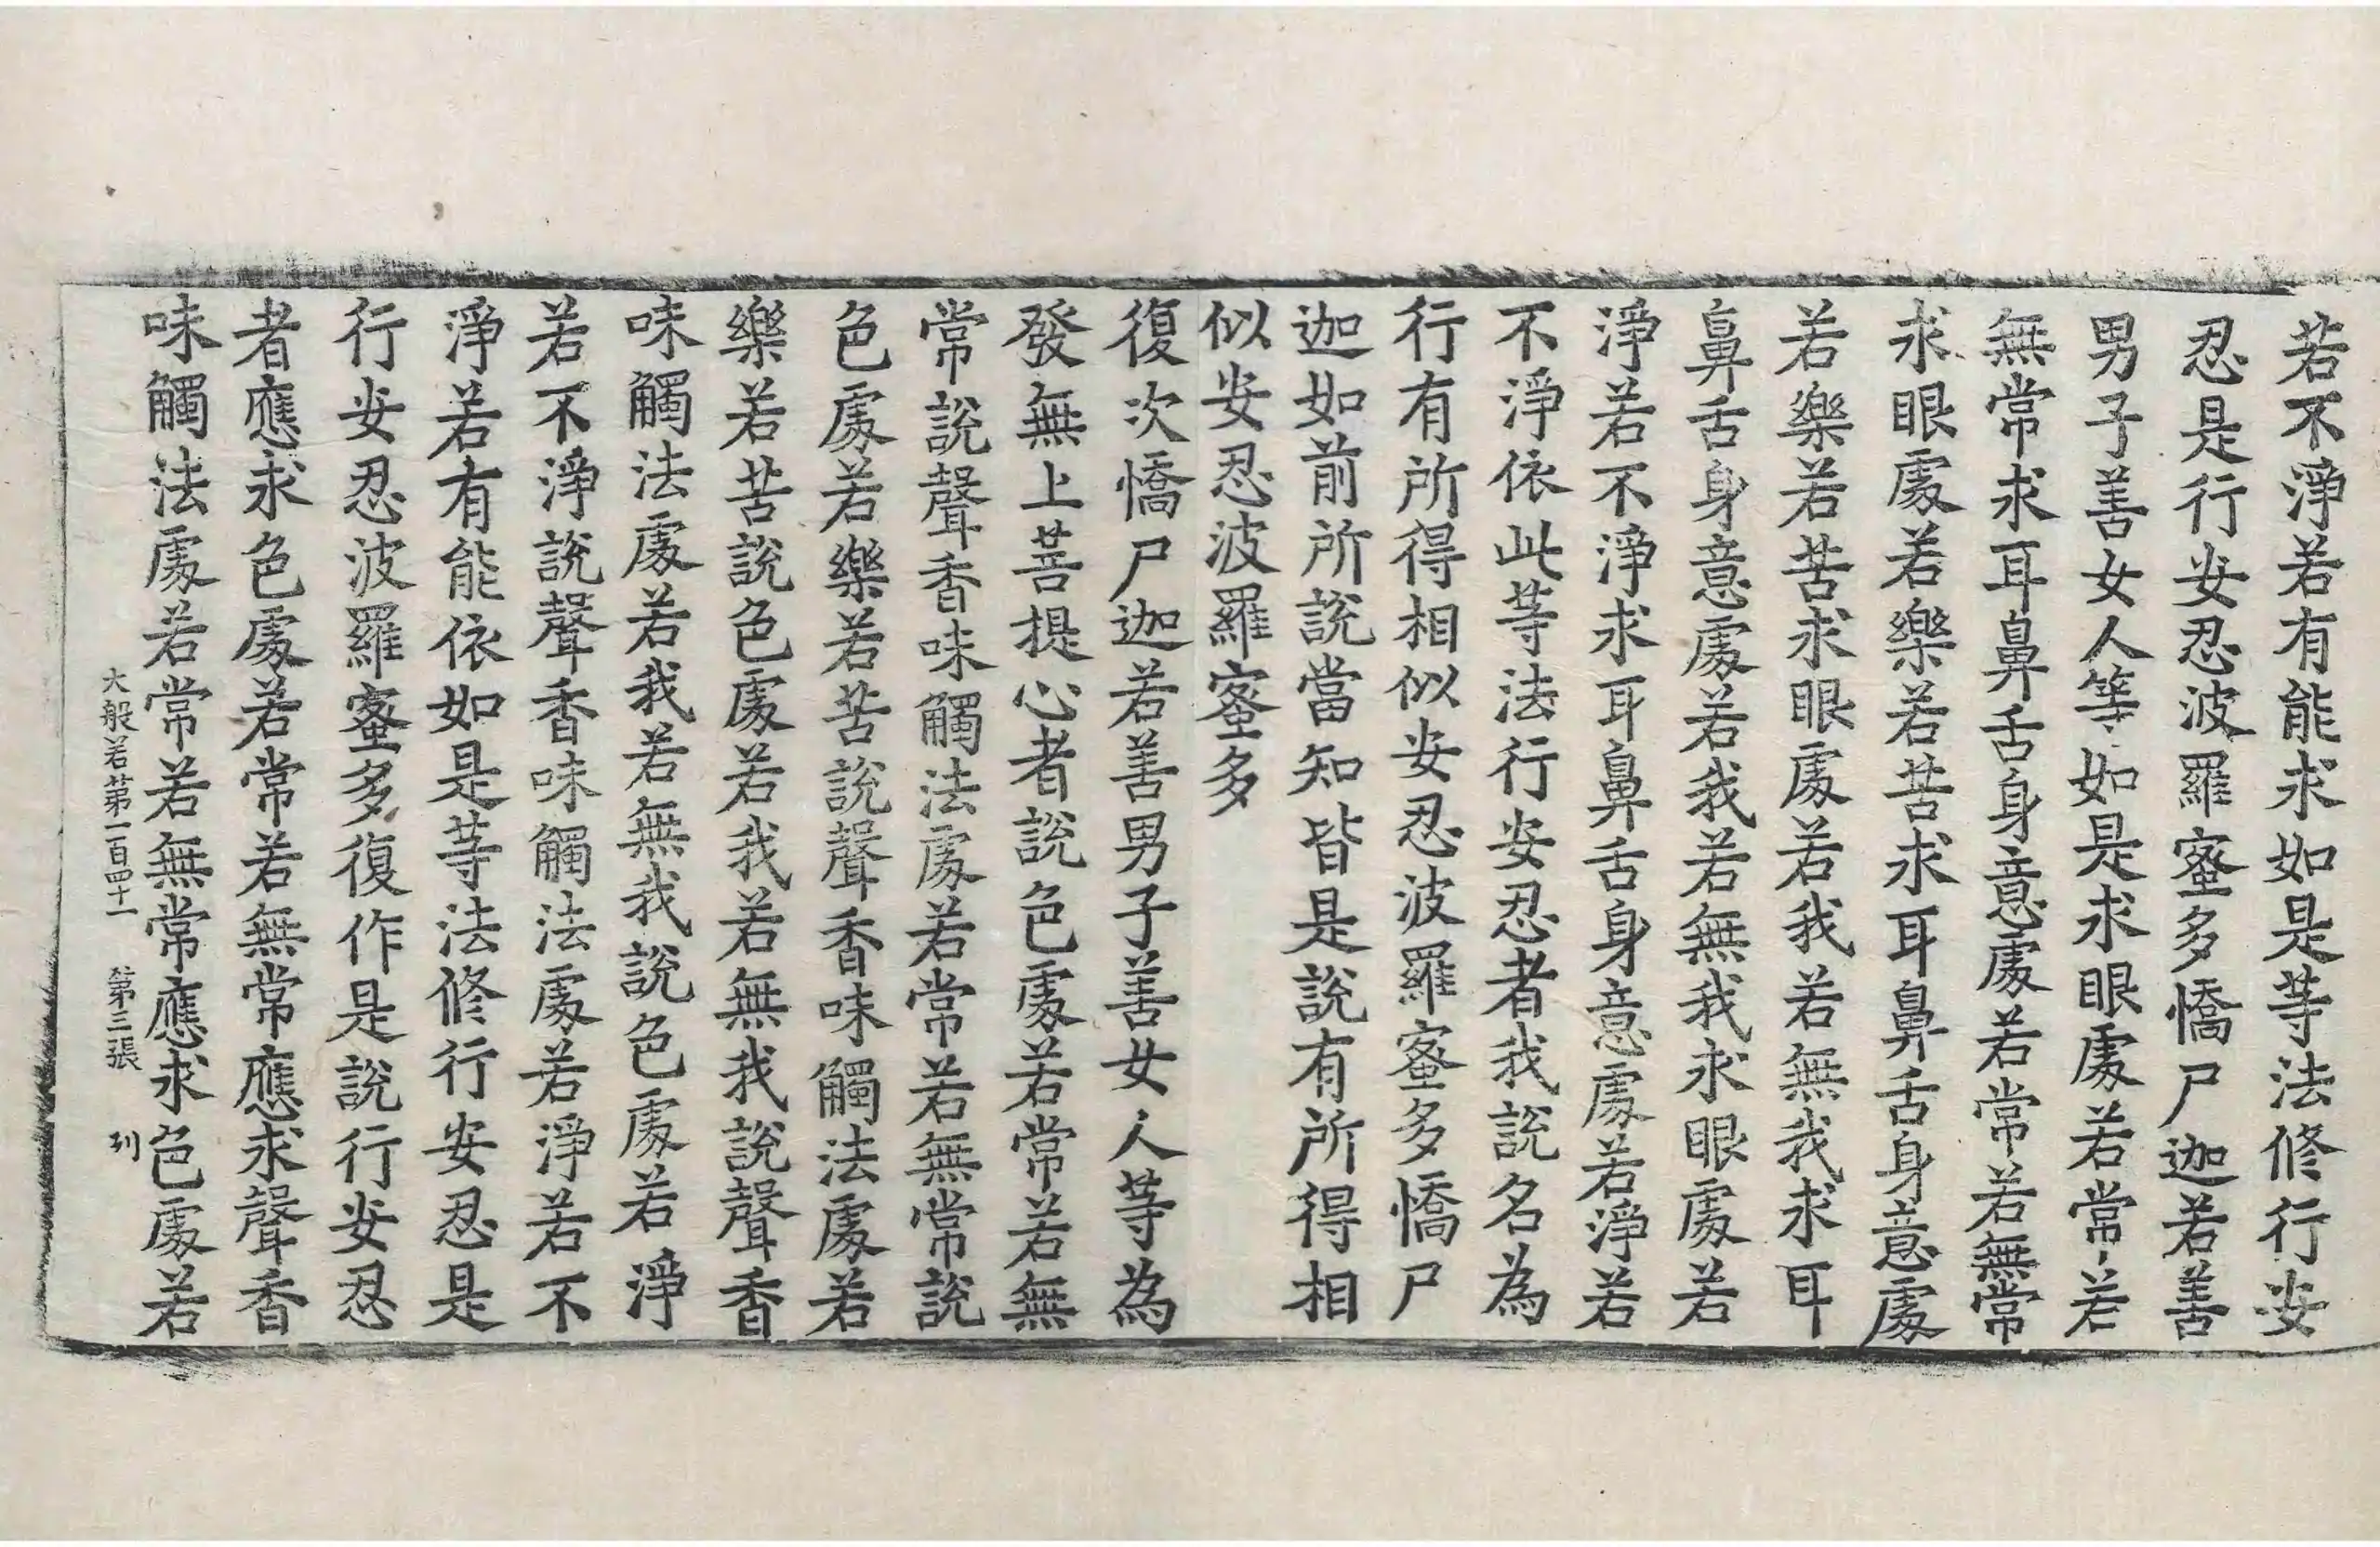 若不淨若有能求如是等法修行安
忍是行安忍波羅蜜多憍尸迦若善
男子善女人等如是求眼處若常若
無常求耳鼻舌身意處若常若無常
求眼處若樂若苦求耳鼻舌身意處
若樂若苦求眼處若我若無我求耳
鼻舌身意處若我若無我求眼處若
淨若不淨求耳鼻舌身意處若淨若
不淨依此等法行安忍者我說名為
行有所得相似安忍波羅蜜多憍尸
迦如前所說當知皆是說有所得相
似安忍波羅蜜多
復次憍尸迦若善男子善女人等為
發無上菩提心者說色處若常若無
常說聲香味觸法處若常若無常說
色處若樂若苦說聲香味觸法處若
樂若苦說色處若我若無我說聲香
味觸法處若我若無我說色處若淨
若不淨說聲香味觸法處若淨若不
淨若有能依如是等法修行安忍是
行安忍波羅蜜多復作是說行安忍
者應求色處若常若無常應求聲香
味觸法處若常若無常應求色處若
大般若第一百四十一 第三張